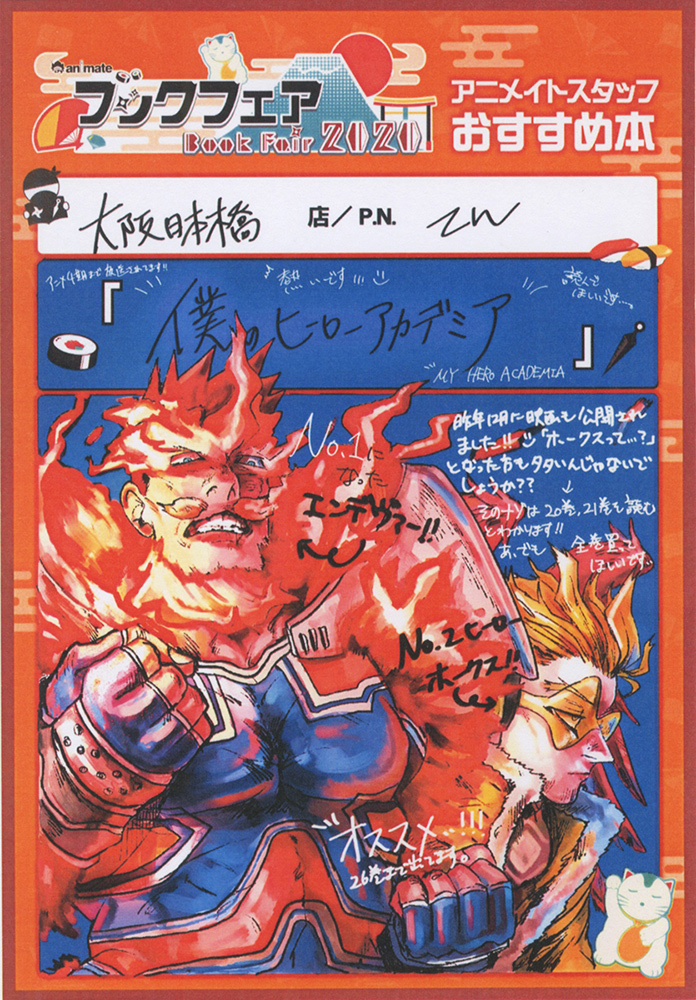 animate
ブックフェア
Book Fair 2020
アニメイトスタッフ
おすすめ本
大阪日本橋 店/P.N. てん
アニメ4期まで放送されてます!!
いいです!!!
読んで
ほしいです…。
「僕のヒーローアカデミア」
MY HERO ACADEMIA
No.1に
なった
エンデヴァー!!
昨年12月に映画も公開され
ました!!「ホークスって…?」
となった方も多いんじゃないで
しょうか??
↓
そのナゾは20巻,21巻を読む
とわかります!!
あ、でも 全巻買って
ほしいです。
No.2ヒーロー
ホークス!!
オススメ!!!
26巻まで出てます。